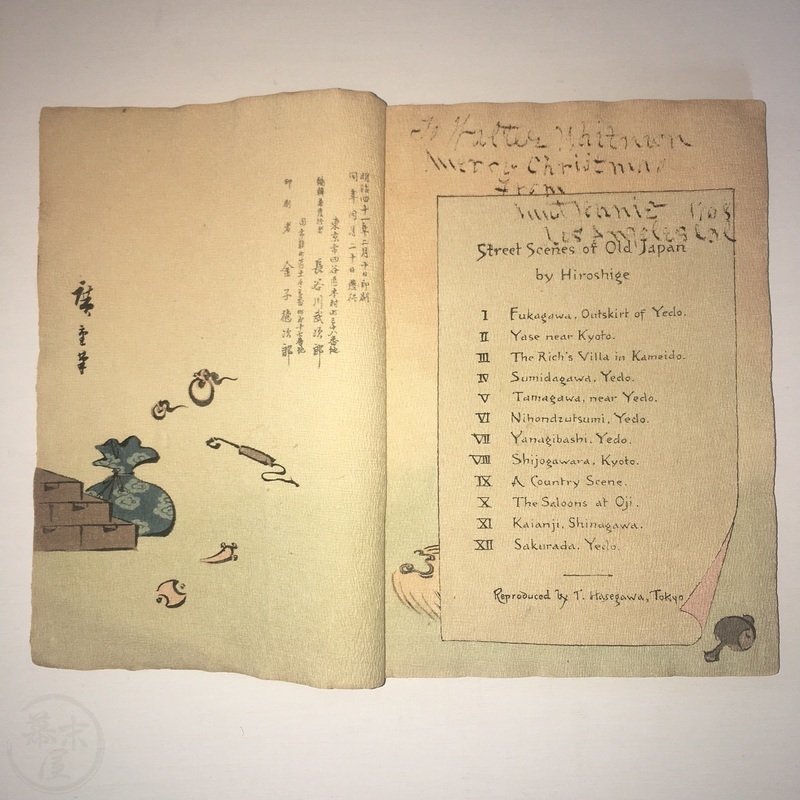 明治四十一年二月十日印刷
同年同月二十日發行
東京市四谷區本村町三十八番地
長谷川武次郎
印刷者 金子德次郎
廣重筆
To Walter Whitman
Merry Christmas
From
Aunt 1908
Los Angeles Cal
Street Scenes of Old Japan
by Hiroshige
I Fukagawa, Outskirt of Yedo.
II Yase near Kyoto.
III The Rich's Villa in Kameido.
IV Sumidagawa, Yedo.
V Tamagawa, near Yedo.
VI Nihondzutsumi, Yedo.
VII Yanagibashi, Yedo.
VIII Shijogawara, Kyoto.
IX A Country Scene.
X The Saloons at Oji.
XI Kaianji, Shinagawa.
XII Sakurada, Yedo.
Reproduced by T. Hasegawa, Tokyo
幕末屋